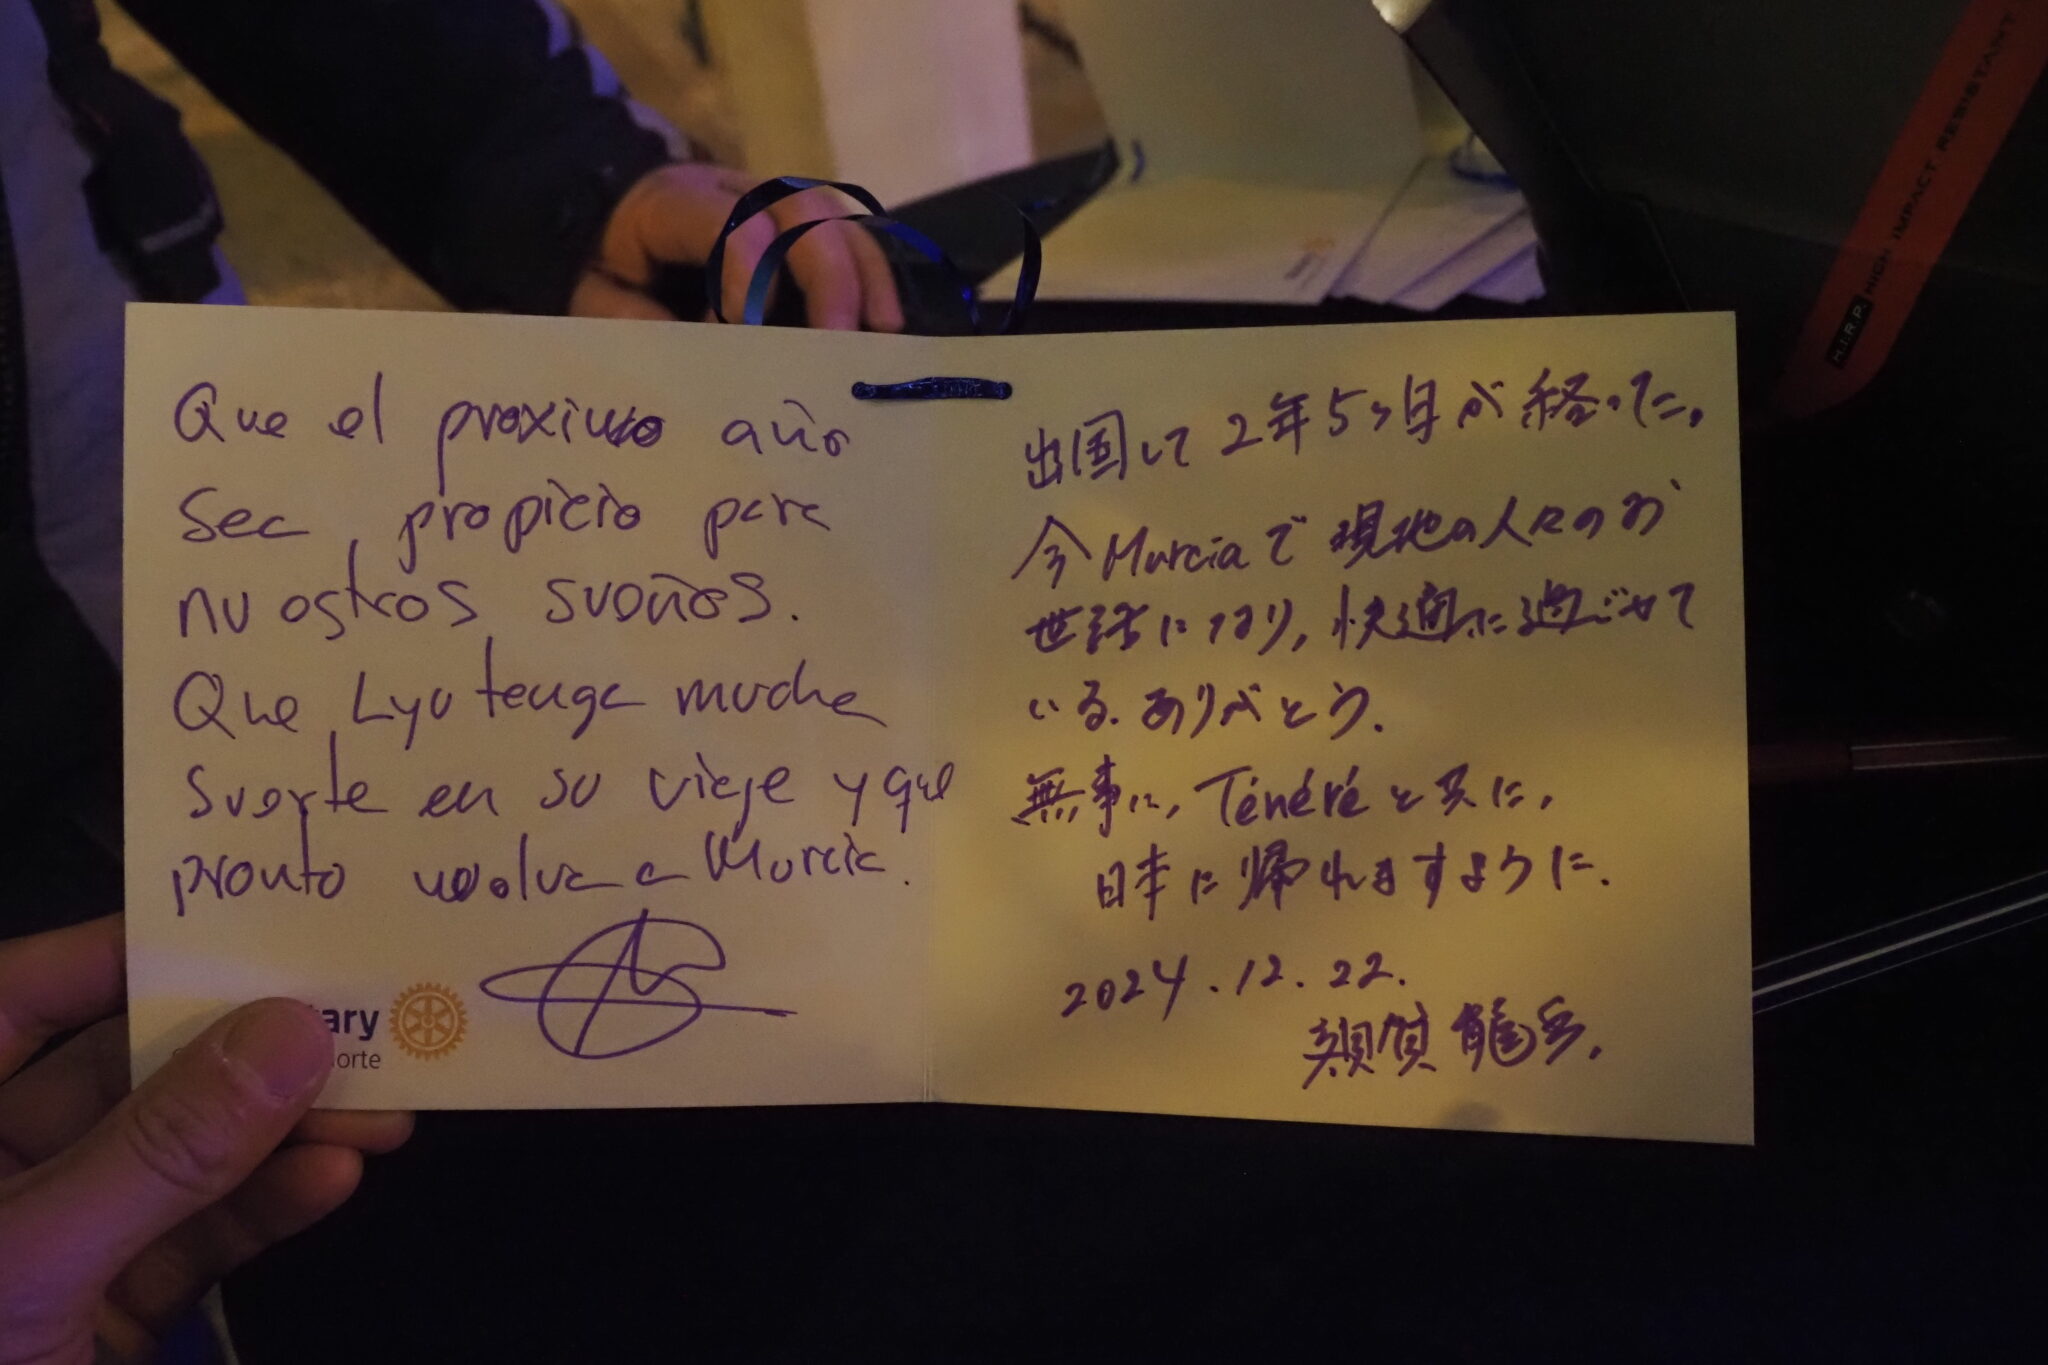 Que el proximo año
sea propicio para
nuestros sueños.
Que Lyu tenga mucha
suerte en su viaje y que
pronto vuelva a Murcia.
tary
orte
出国して2年5ヶ月が経った。
今Murciaで現地の人々のお
世話になり、快適に過ごせて
いる。ありがとう。
無事に、Ténéréと共に、
日本に帰れますように。
2024.12.22.
龍
H.I.R.P. HIGH IMPACT RESISTANT